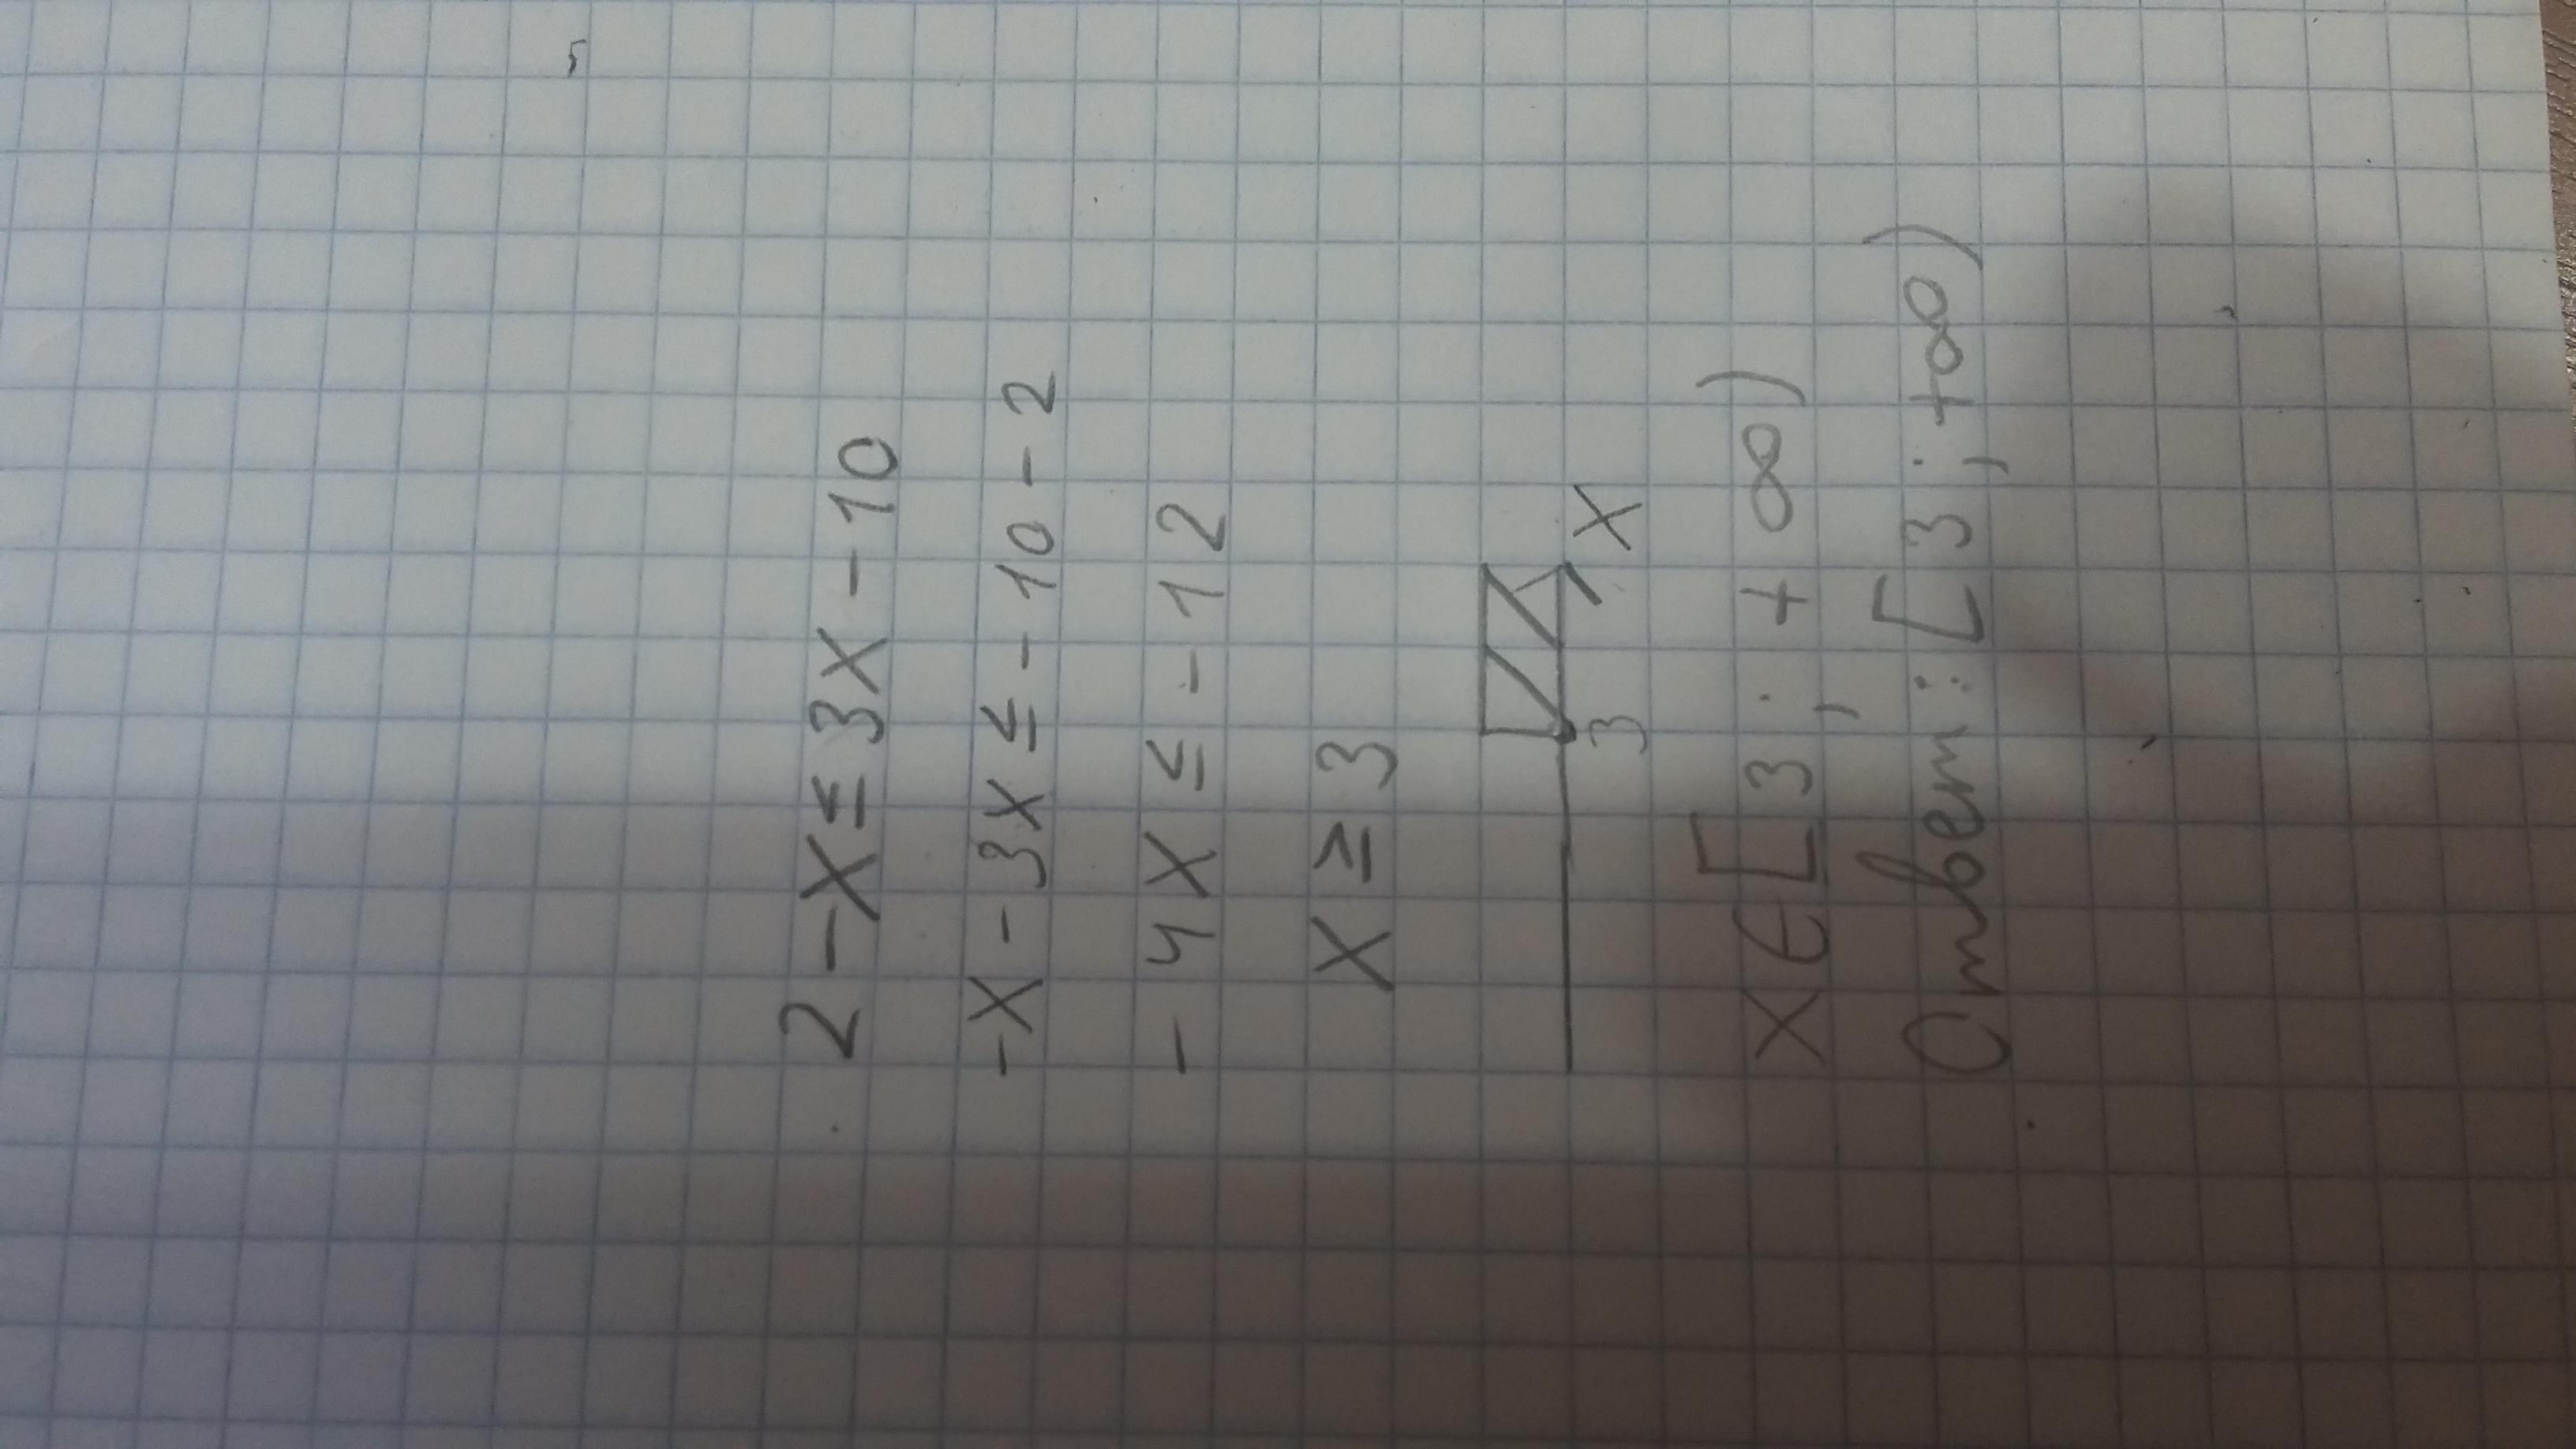 2 - X ≤ 3X - 10
- X - 3X ≤ - 10 - 2
- 4X ≤ - 12
X ≥ 3
3 X
X ∈ [3; + ∞)
Ответ: [3; +∞)